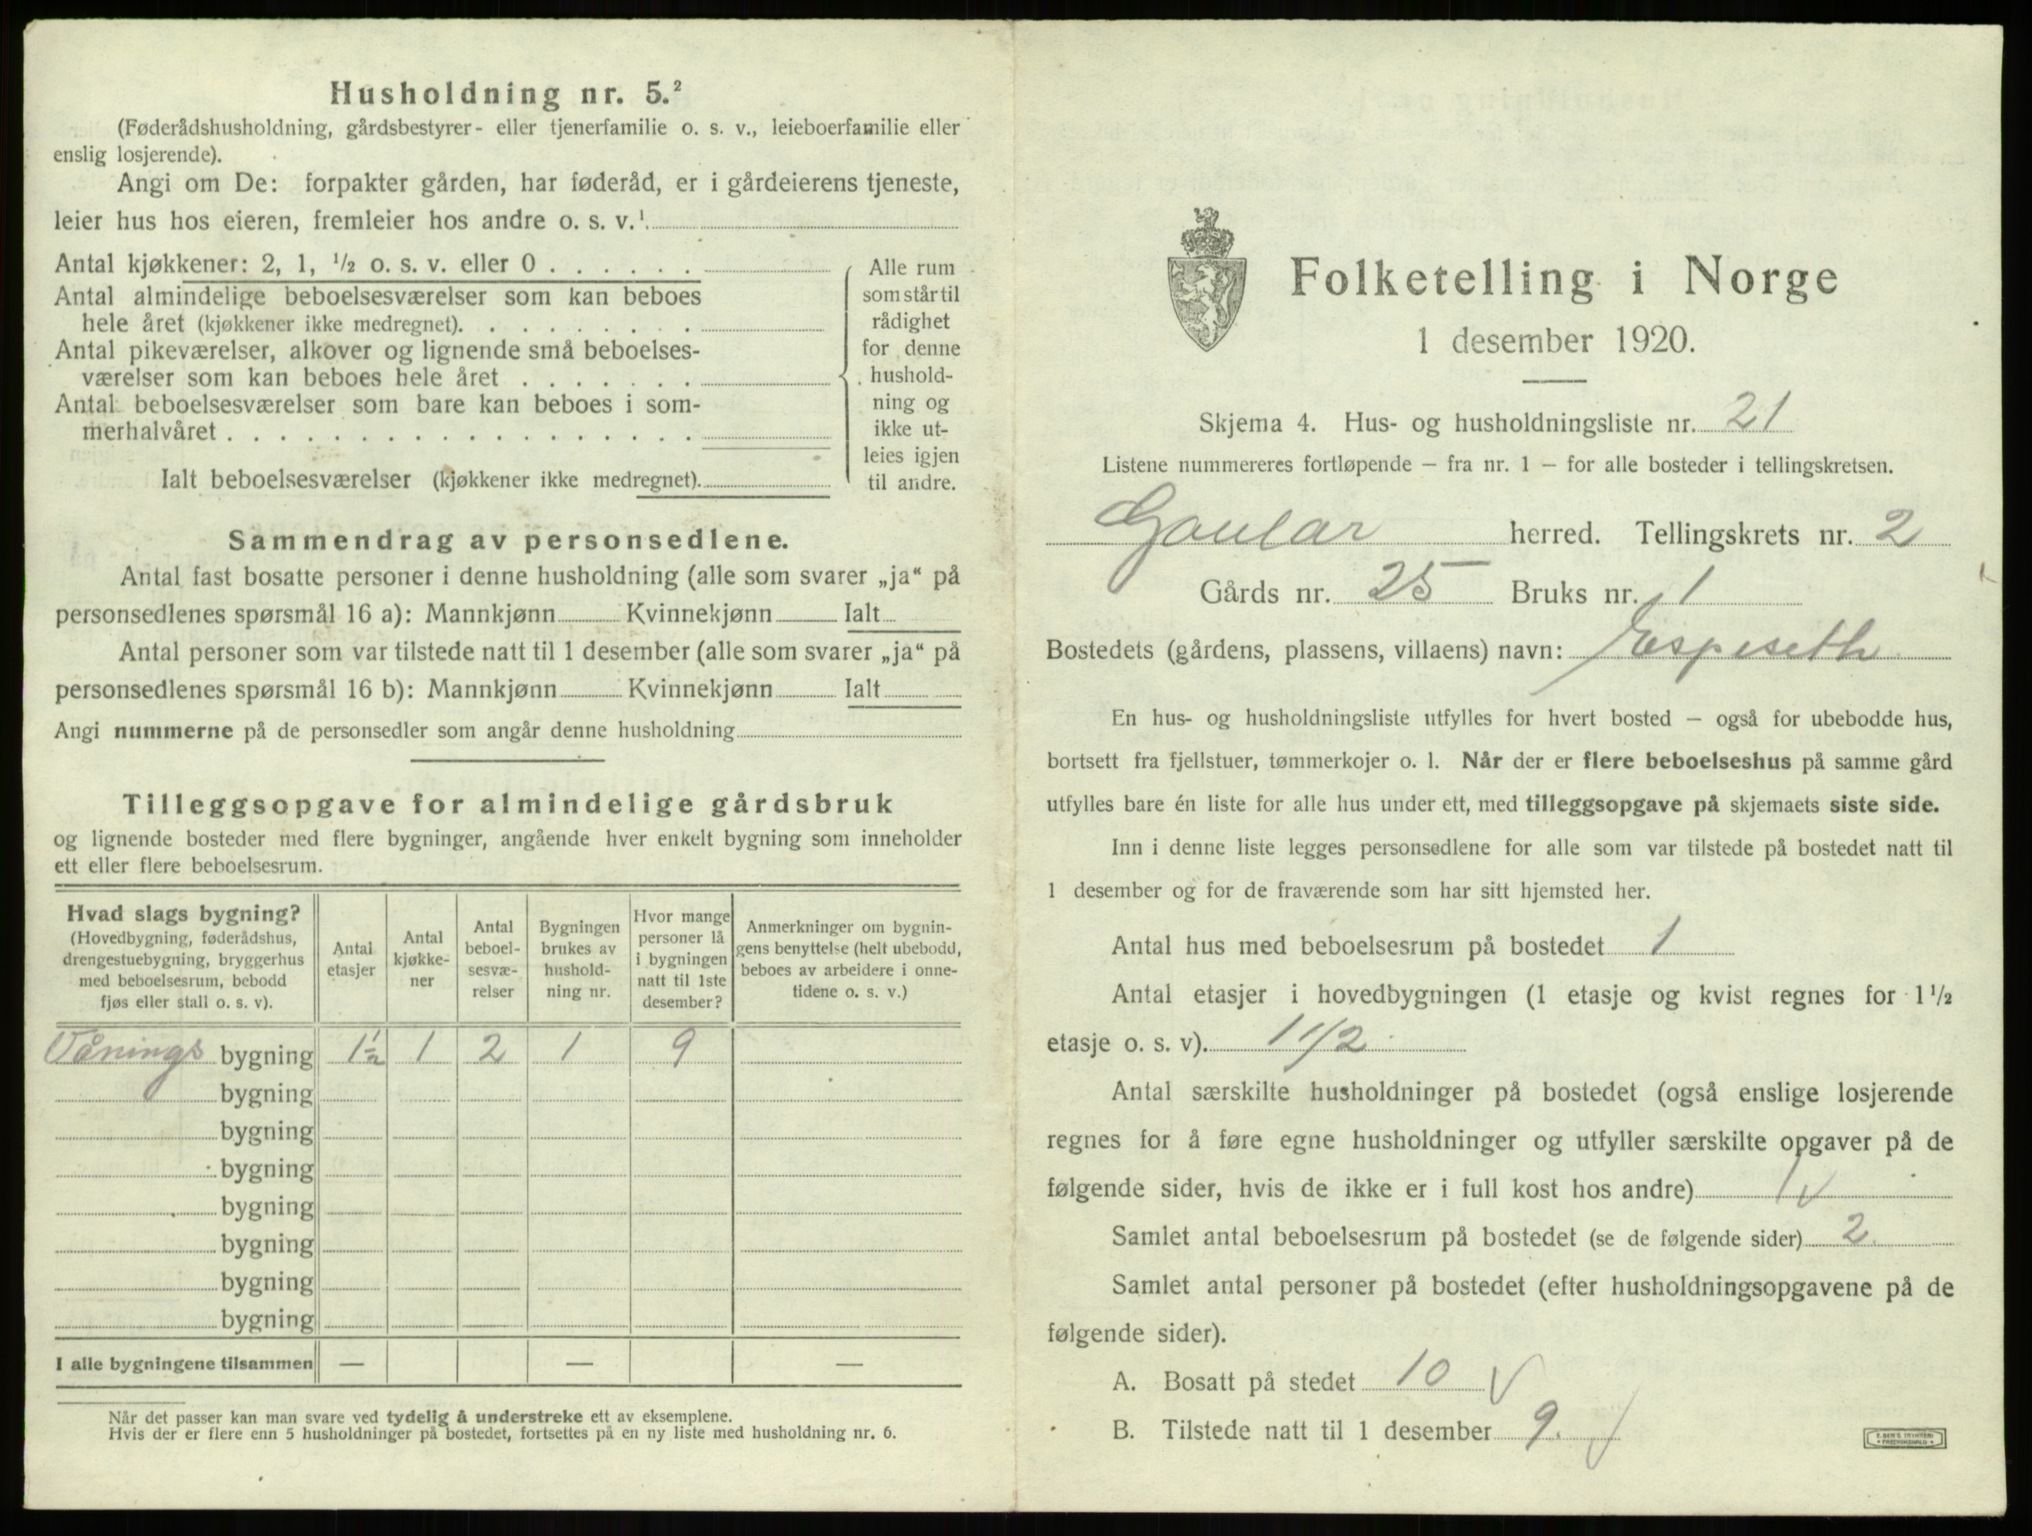 Husholdning nr. 5.²
(Føderådshusholdning, gårdsbestyrer- eller tjenerfamilie o. s. v., leieboerfamilie eller
enslig losjerende).
Angi om De: forpakter gården, har føderåd, er i gårdeierens tjeneste,
leier hus hos eieren, fremleier hos andre o. s. v.¹
Antal kjøkkener: 2, 1, ½ o. s. v. eller 0 . . . . . .
Antal almindelige beboelsesværelser som kan beboes
hele året (kjøkkener ikke medregnet). . . . . . . . .
Antal pikeværelser, alkover og lignende små beboelses-
værelser som kan beboes hele året . . . . . . .
Antal beboelsesværelser som bare kan beboes i som-
merhalvåret . . . . . . . . . . . . . . . . .
Ialt beboelsesværelser (kjøkkener ikke medregnet).
Alle rum
som står til
rådighet
for denne
hushold-
ning og
ikke ut-
leies igjen
til andre.
Sammendrag av personsedlene.
Antal fast bosatte personer i denne husholdning (alle som svarer „ja“ på
personsedlenes spørsmål 16 a): Mannkjønn Kvinnekjønn Ialt
Antal personer som var tilstede natt til 1 desember (alle som svarer „ja“ på
personsedlenes spørsmål 16 b): Mannkjønn Kvinnekjønn Ialt
Angi nummerne på de personsedler som angår denne husholdning
Tilleggsopgave for almindelige gårdsbruk
og lignende bosteder med flere bygninger, angående hver enkelt bygning som inneholder
ett eller flere beboelsesrum.
Hvad slags bygning?
(Hovedbygning, føderådshus,
drengestuebygning, bryggerhus
med beboelsesrum, bebodd
fjøs eller stall o. s. v).
Antal
etasjer
Antal
kjøkke-
ner
Antal
beboel-
sesvæ-
relser
Bygningen
brukes av
hushold-
ning nr.
Hvor mange
personer lå
i bygningen
natt til 1ste
desember?
Anmerkninger om bygnin-
gens benyttelse (helt ubebodd,
beboes av arbeidere i onne-
tidene o. s. v.)
Vånings bygning 1½ 1 2 1 9
bygning
bygning
bygning
bygning
bygning
bygning
bygning
I alle bygningene tilsammen — — —
Når det passer kan man svare ved tydelig å understreke ett av eksemplene.
Hvis der er flere enn 5 husholdninger på bostedet, fortsettes på en ny liste med husholdning nr. 6.
Folketelling i Norge
1 desember 1920.
Skjema 4. Hus- og husholdningsliste nr. 21
Listene nummereres fortløpende – fra nr. 1 – for alle bosteder i tellingskretsen.
Gaular herred. Tellingskrets nr. 2
Gårds nr. 25 Bruks nr. 1
Bostedets (gårdens, plassens, villaens) navn: Espeseth
En hus- og husholdningsliste utfylles for hvert bosted – også for ubebodde hus,
bortsett fra fjellstuer, tømmerkojer o. l. Når der er flere beboelseshus på samme gård
utfylles bare én liste for alle hus under ett, med tilleggsopgave på skjemaets siste side.
Inn i denne liste legges personsedlene for alle som var tilstede på bostedet natt til
1 desember og for de fraværende som har sitt hjemsted her.
Antal hus med beboelsesrum på bostedet 1
Antal etasjer i hovedbygningen (1 etasje og kvist regnes for 1½
etasje o. s. v). 1 1/2
Antal særskilte husholdninger på bostedet (også enslige losjerende
regnes for å føre egne husholdninger og utfyller særskilte opgaver på de
følgende sider, hvis de ikke er i full kost hos andre) 1 √
Samlet antal beboelsesrum på bostedet (se de følgende sider) 2
Samlet antal personer på bostedet (efter husholdningsopgavene på de
følgende sider).
A. Bosatt på stedet 10 √
B. Tilstede natt til 1 desember 9. √